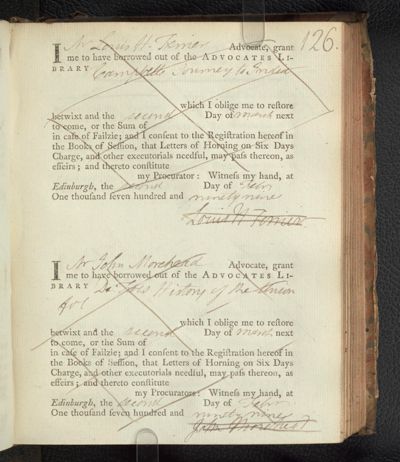 126.
I Mr Louis H. Ferrier Advocate, grant
me to have borrowed out of the ADVOCATES LI-
BRARY Campbell's Journey to India
which I oblige me to reſtore
betwixt and the second Day of march next
to come, or the Sum of
in caſe of Failzie; and I conſent to the Regiſtration hereof in
the Books of Seſſion, that Letters of Horning on Six Days
Charge, and other executorials needful, may paſs thereon, as
effeirs; and thereto conſtitute
my Procurator: Witneſs my hand, at
Edinburgh, the second Day of Febry
One thouſand ſeven hundred and ninety nine
Louis H Ferrier
I Mr John Morehead Advocate, grant
me to have borrowed out of the ADVOCATES LI-
BRARY History of the
which I oblige me to reſtore
betwixt and the second Day of march next
to come, or the Sum of
in caſe of Failzie; and I conſent to the Regiſtration hereof in
the Books of Seſſion, that Letters of Horning on Six Days
Charge, and other executorials needful, may paſs thereon, as
effeirs; and thereto conſtitute
my Procurators: Witneſs my hand, at
Edinburgh, the second Day of Febry
One thouſand ſeven hundred and ninety nine
John Morehead